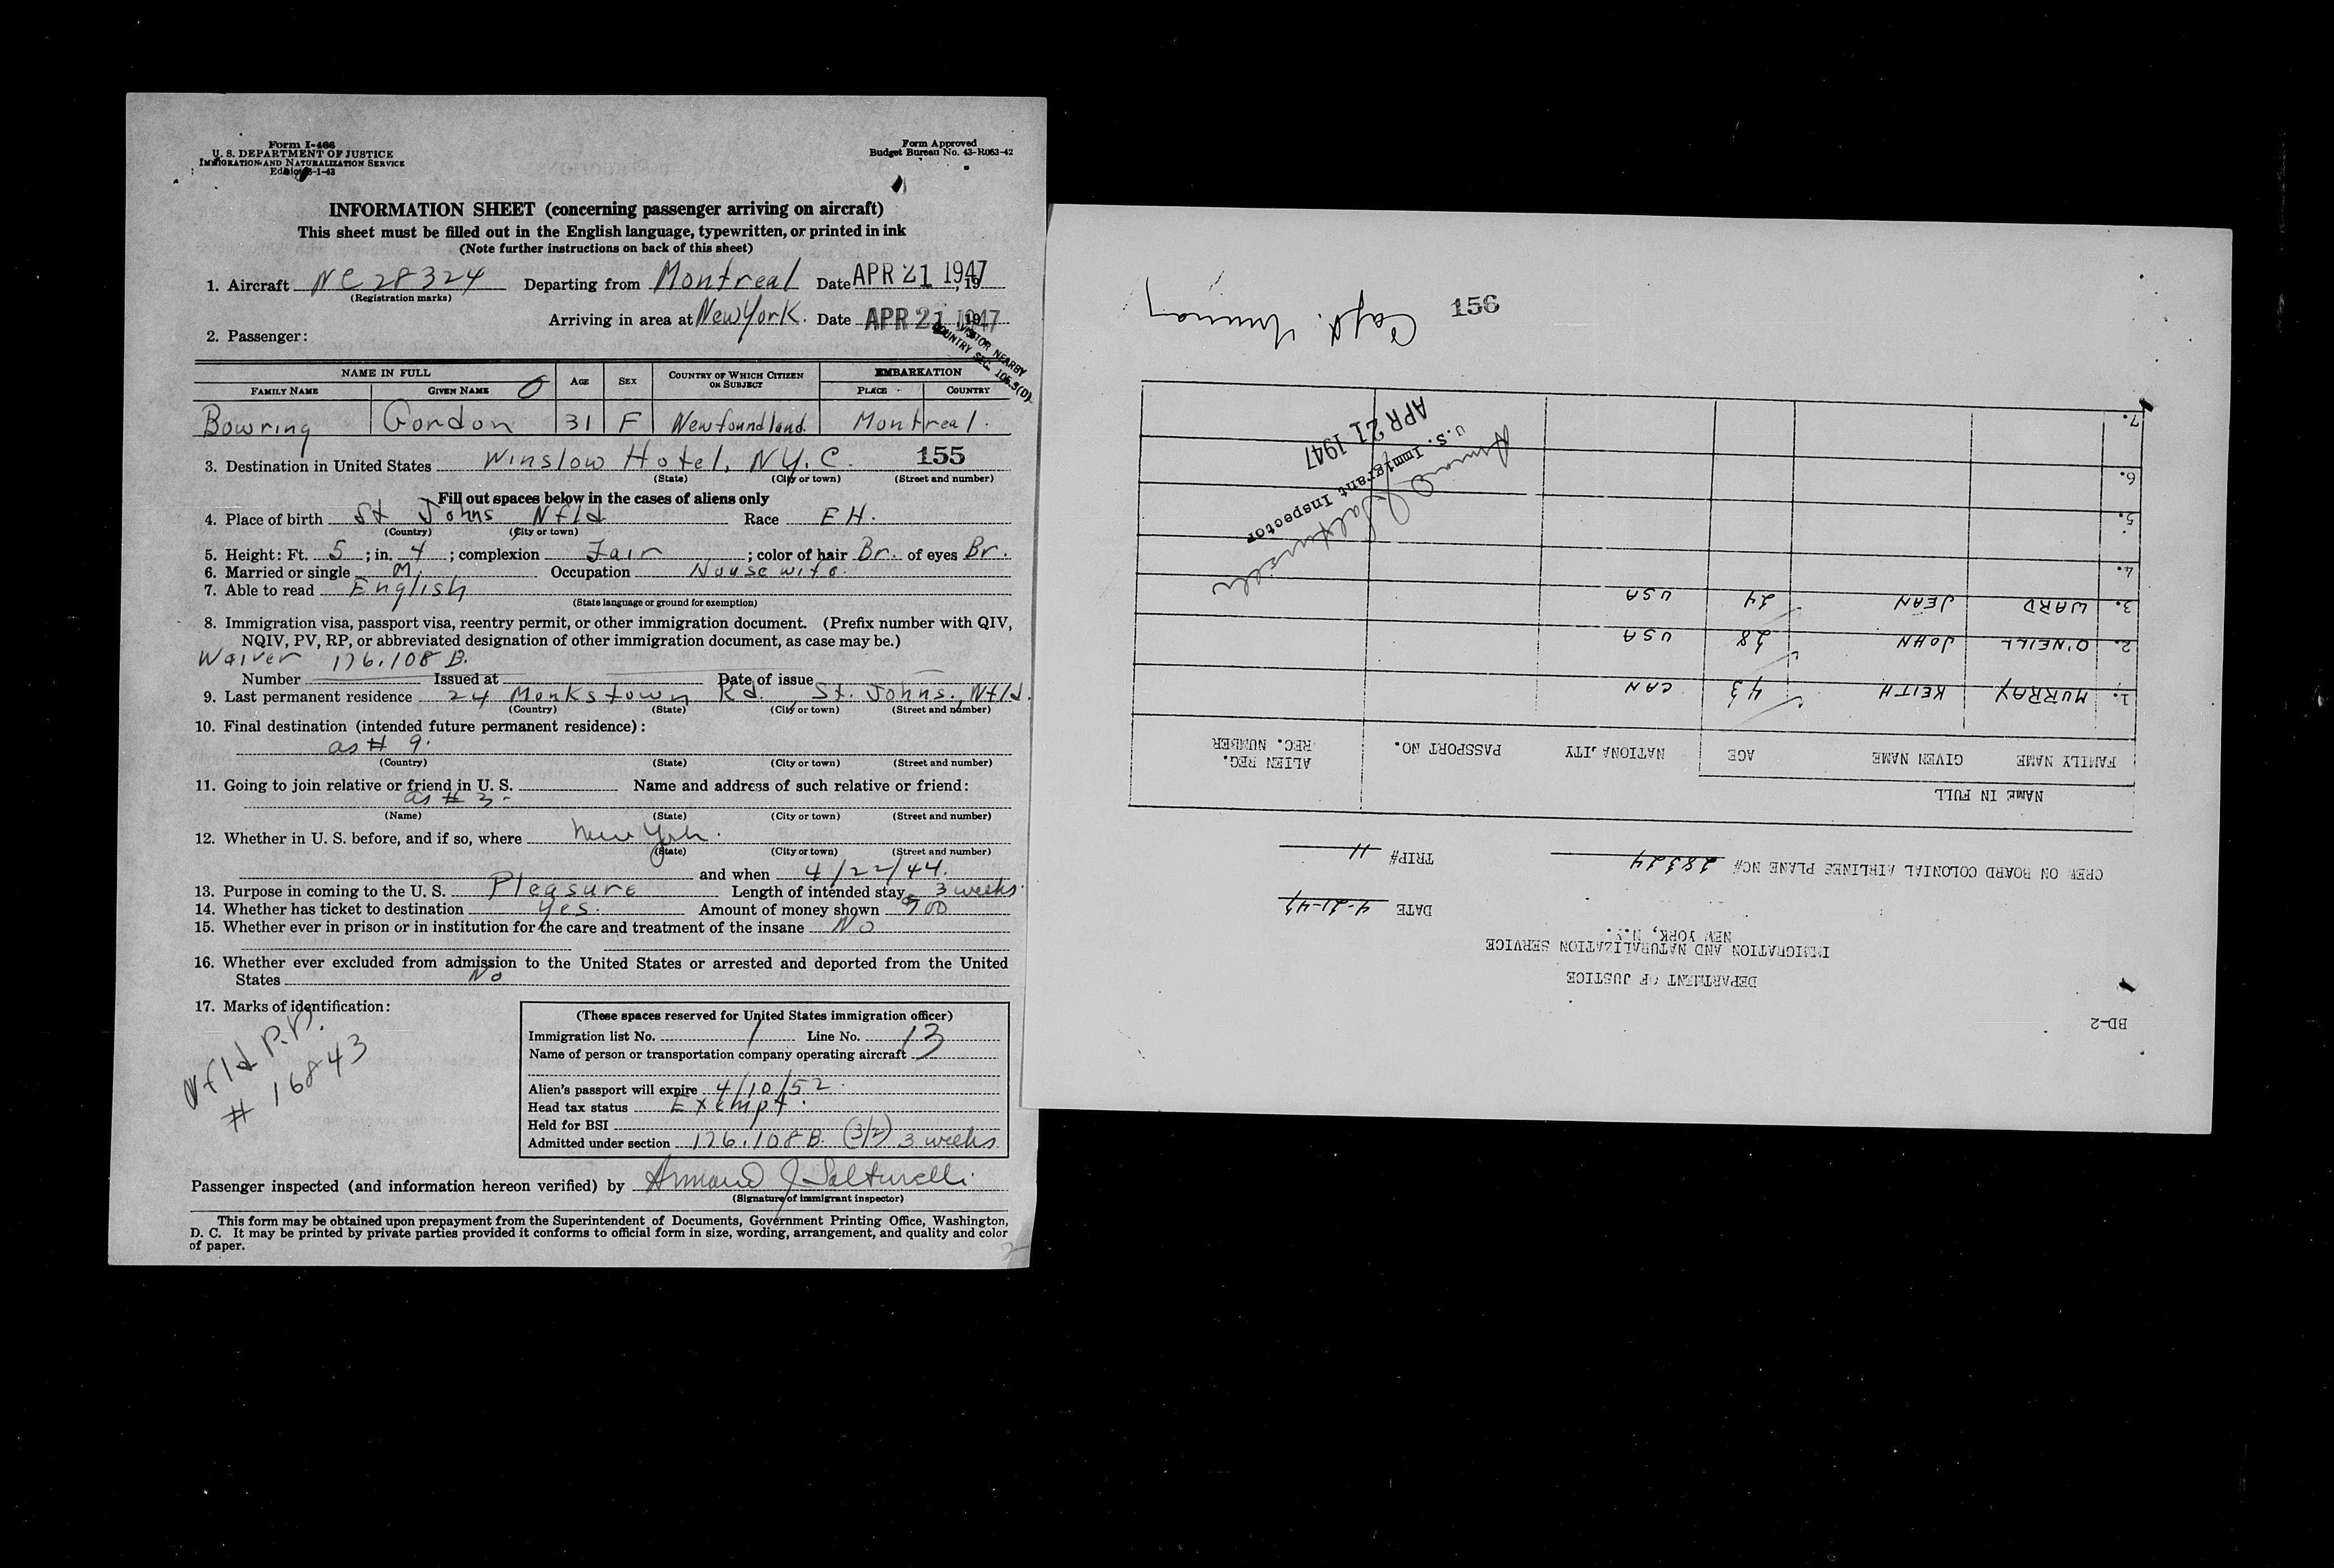 Form I-466
U. S. DEPARTMENT OF JUSTICE
IMMIGRATION AND NATURALIZATION SERVICE
Edition 5-1-43
Form Approved
Budget Bureau No. 43-R063-42
INFORMATION SHEET (concerning passenger arriving on aircraft)
This sheet must be filled out in the English language, typewritten, or printed in ink
(Note further instructions on back of this sheet)
1. Aircraft NC 28324 Departing from Montreal Date APR 21 1947, 19
(Registration marks)
Arriving in area at New York. Date APR 21 1947 19
VISITOR NEARBY
COUNTRY SEC.
2. Passenger:
NAME IN FULL AGE SEX COUNTRY OF WHICH CITIZEN OR SUBJECT EMBARKATION
FAMILY NAME GIVEN NAME PLACE COUNTRY
Bowring Gordon 31 F Newfoundland. Montreal.
3. Destination in United States Winslow Hotel, N.Y.C. 155
(State) (City or town) (Street and number)
Fill out spaces below in the cases of aliens only
4. Place of birth St Johns Nfld Race EH.
(Country) (City or town)
5. Height: Ft. 5; in. 4; complexion Fair; color of hair Br. of eyes Br.
6. Married or single M. Occupation Housewife.
7. Able to read English
(State language or ground for exemption)
8. Immigration visa, passport visa, reentry permit, or other immigration document. (Prefix number with QIV,
NQIV, PV, RP, or abbreviated designation of other immigration document, as case may be.)
Waiver 176.108 B.
Number Issued at Date of issue
9. Last permanent residence 24 Monkstown Rd. St. Johns, Nfld.
(Country) (State) (City or town) (Street and number)
10. Final destination (intended future permanent residence):
as # 9.
(Country) (State) (City or town) (Street and number)
11. Going to join relative or friend in U. S. Name and address of such relative or friend:
as # 3-
(Name) (State) (City or town) (Street and number)
12. Whether in U. S. before, and if so, where New York.
(State) (City or town) (Street and number)
and when 4/22/44.
13. Purpose in coming to the U. S. Pleasure Length of intended stay 3 weeks.
14. Whether has ticket to destination Yes. Amount of money shown 900
15. Whether ever in prison or in institution for the care and treatment of the insane No
16. Whether ever excluded from admission to the United States or arrested and deported from the United
States No
17. Marks of identification:
Nfld P.P.
# 16843
(These spaces reserved for United States immigration officer)
Immigration list No. 1 Line No. 13
Name of person or transportation company operating aircraft
Alien's passport will expire 4/10/52.
Head tax status Exempt.
Held for BSI
Admitted under section 176.108 B. (3/2) 3 weeks
Passenger inspected (and information hereon verified) by Armand J Salturelli
(Signature of immigrant inspector)
This form may be obtained upon prepayment from the Superintendent of Documents, Government Printing Office, Washington,
D. C. It may be printed by private parties provided it conforms to official form in size, wording, arrangement, and quality and color
of paper.
BD-2
DEPARTMENT OF JUSTICE
IMMIGRATION AND NATURALIZATION SERVICE
NEW YORK, N.Y.
DATE 4-21-47
CREW ON BOARD COLONIAL AIRLINES PLANE NC# 28324 TRIP# 11
NAME IN FULL
FAMILY NAME GIVEN NAME AGE NATIONALITY PASSPORT NO. ALIEN REG. REG. NUMBER
1. MURRAY KEITH 43 CAN
2. O'NEILL JOHN 28 USA
3. WARD JEAN 24 USA
4.
5.
6.
7.
Armand J Salturelli
U.S. Immigrant Inspector
APR 21 1947
Capt. Murray
156